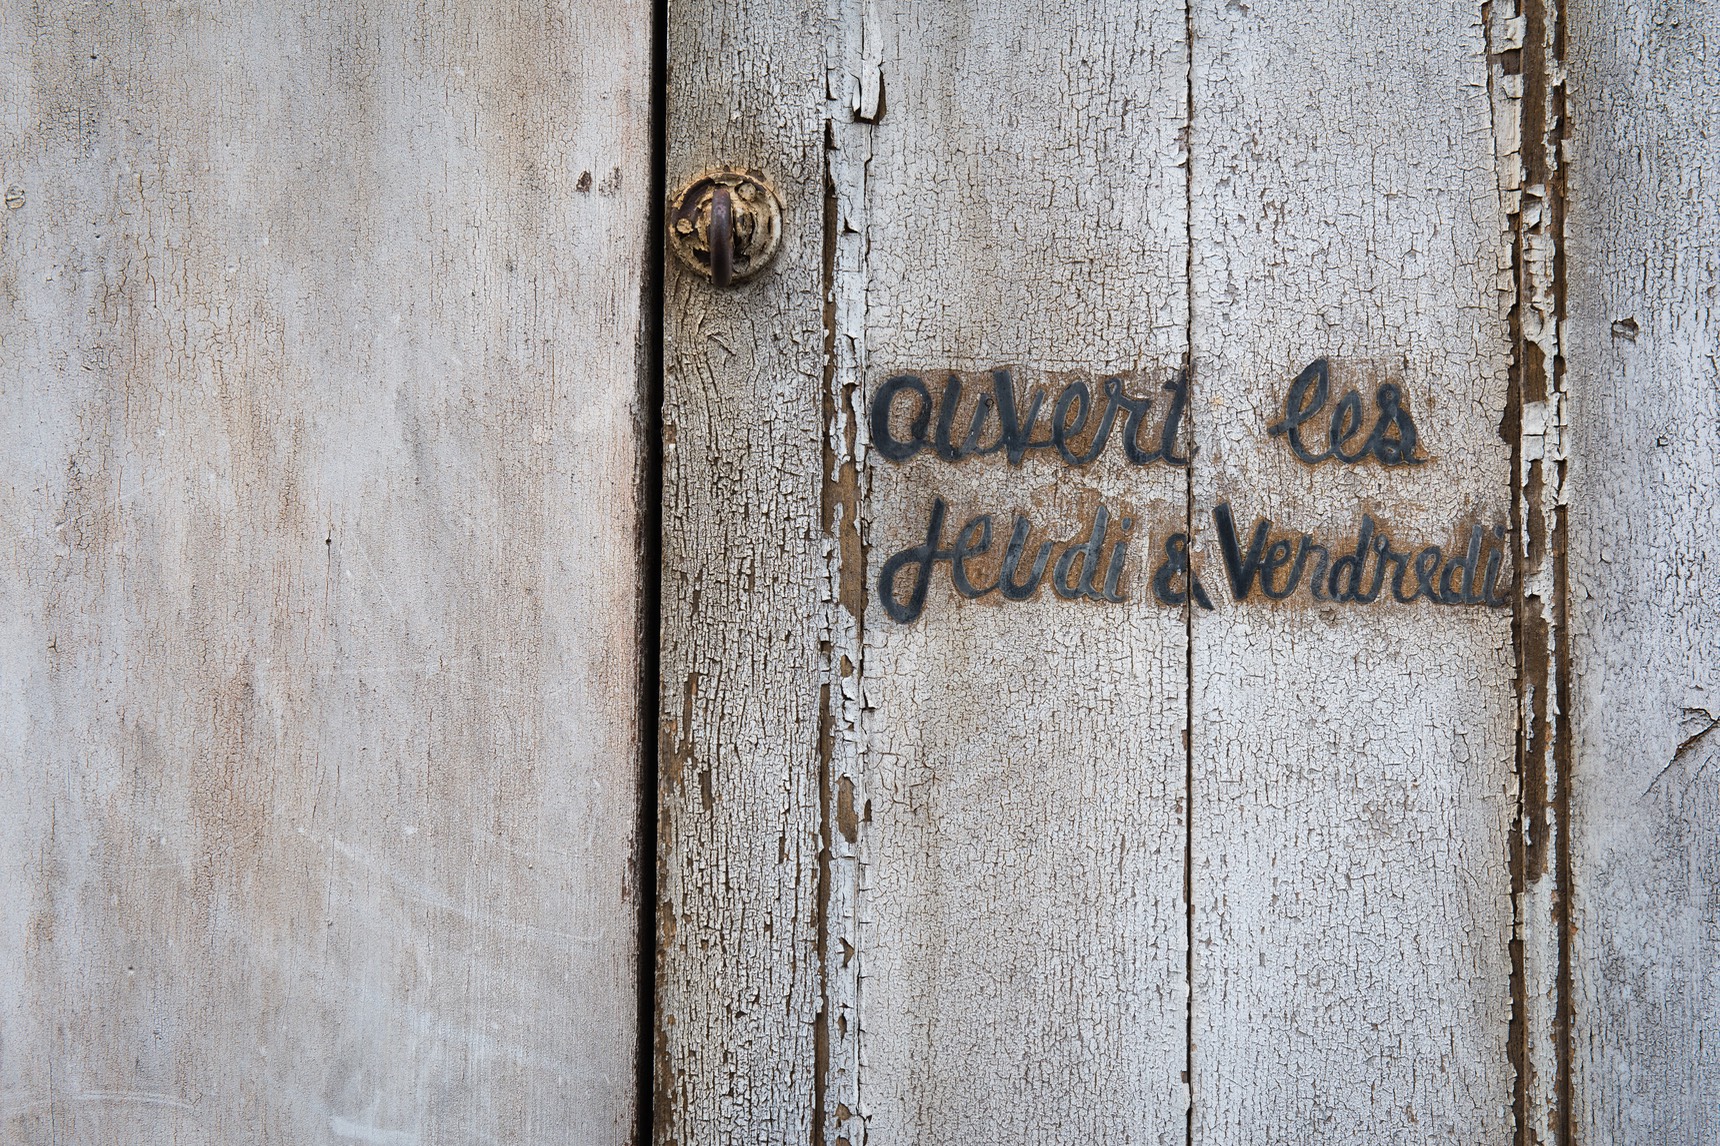 ouvert les
Jeudi & Vendredi